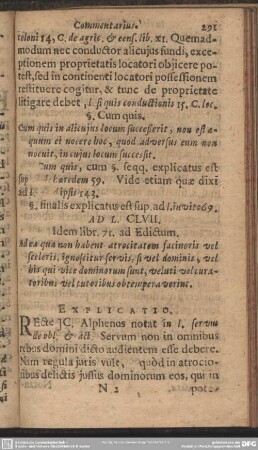 Commentarius. 291
tiloni 14, C. de agric. & cens. lib. XI. Quemad-
modum nec conductor alicujus fundi, exce-
ptionem proprietatis locatori objicere po-
test, sed in continenti locatori possessionem
restituere cogitur, & tunc de proprietate
litigare debet, l. si quis conductionis 15. C. loc.
§. Cum quis.
Cum quis in alicujus locum successerit, non est æ-
quum ei nocere hoc, quod adversus eum non
nocuit, in cujus locum successit.
Cum quis, cum §. seqq. explicatus est
sup l. hæredem 59. Vide etiam quæ dixi
ad l. ipsi 143.
§. finalis explicatus est sup. ad l. invito 69.
AD L. CLVII.
Idem libr. 71. ad Edictum.
Ad ea qua non habent atrocitatem facinoris vel
sceleris, ignoscitur servis, si vel dominis, vel
his qui vice dominorum sunt, veluti vel cura-
toribus vel tutoribus obtemperaverint.
EXPLICATIO.
REcte JC. Alphenus notat in l. servus
de obl. & act. Servum non in omnibus
rebus domini dicto audientem esse debere.
Nam regula juris vult, quòd in atrocio-
ribus delictis jussus dominorum eos, qui in
N 2 pote-